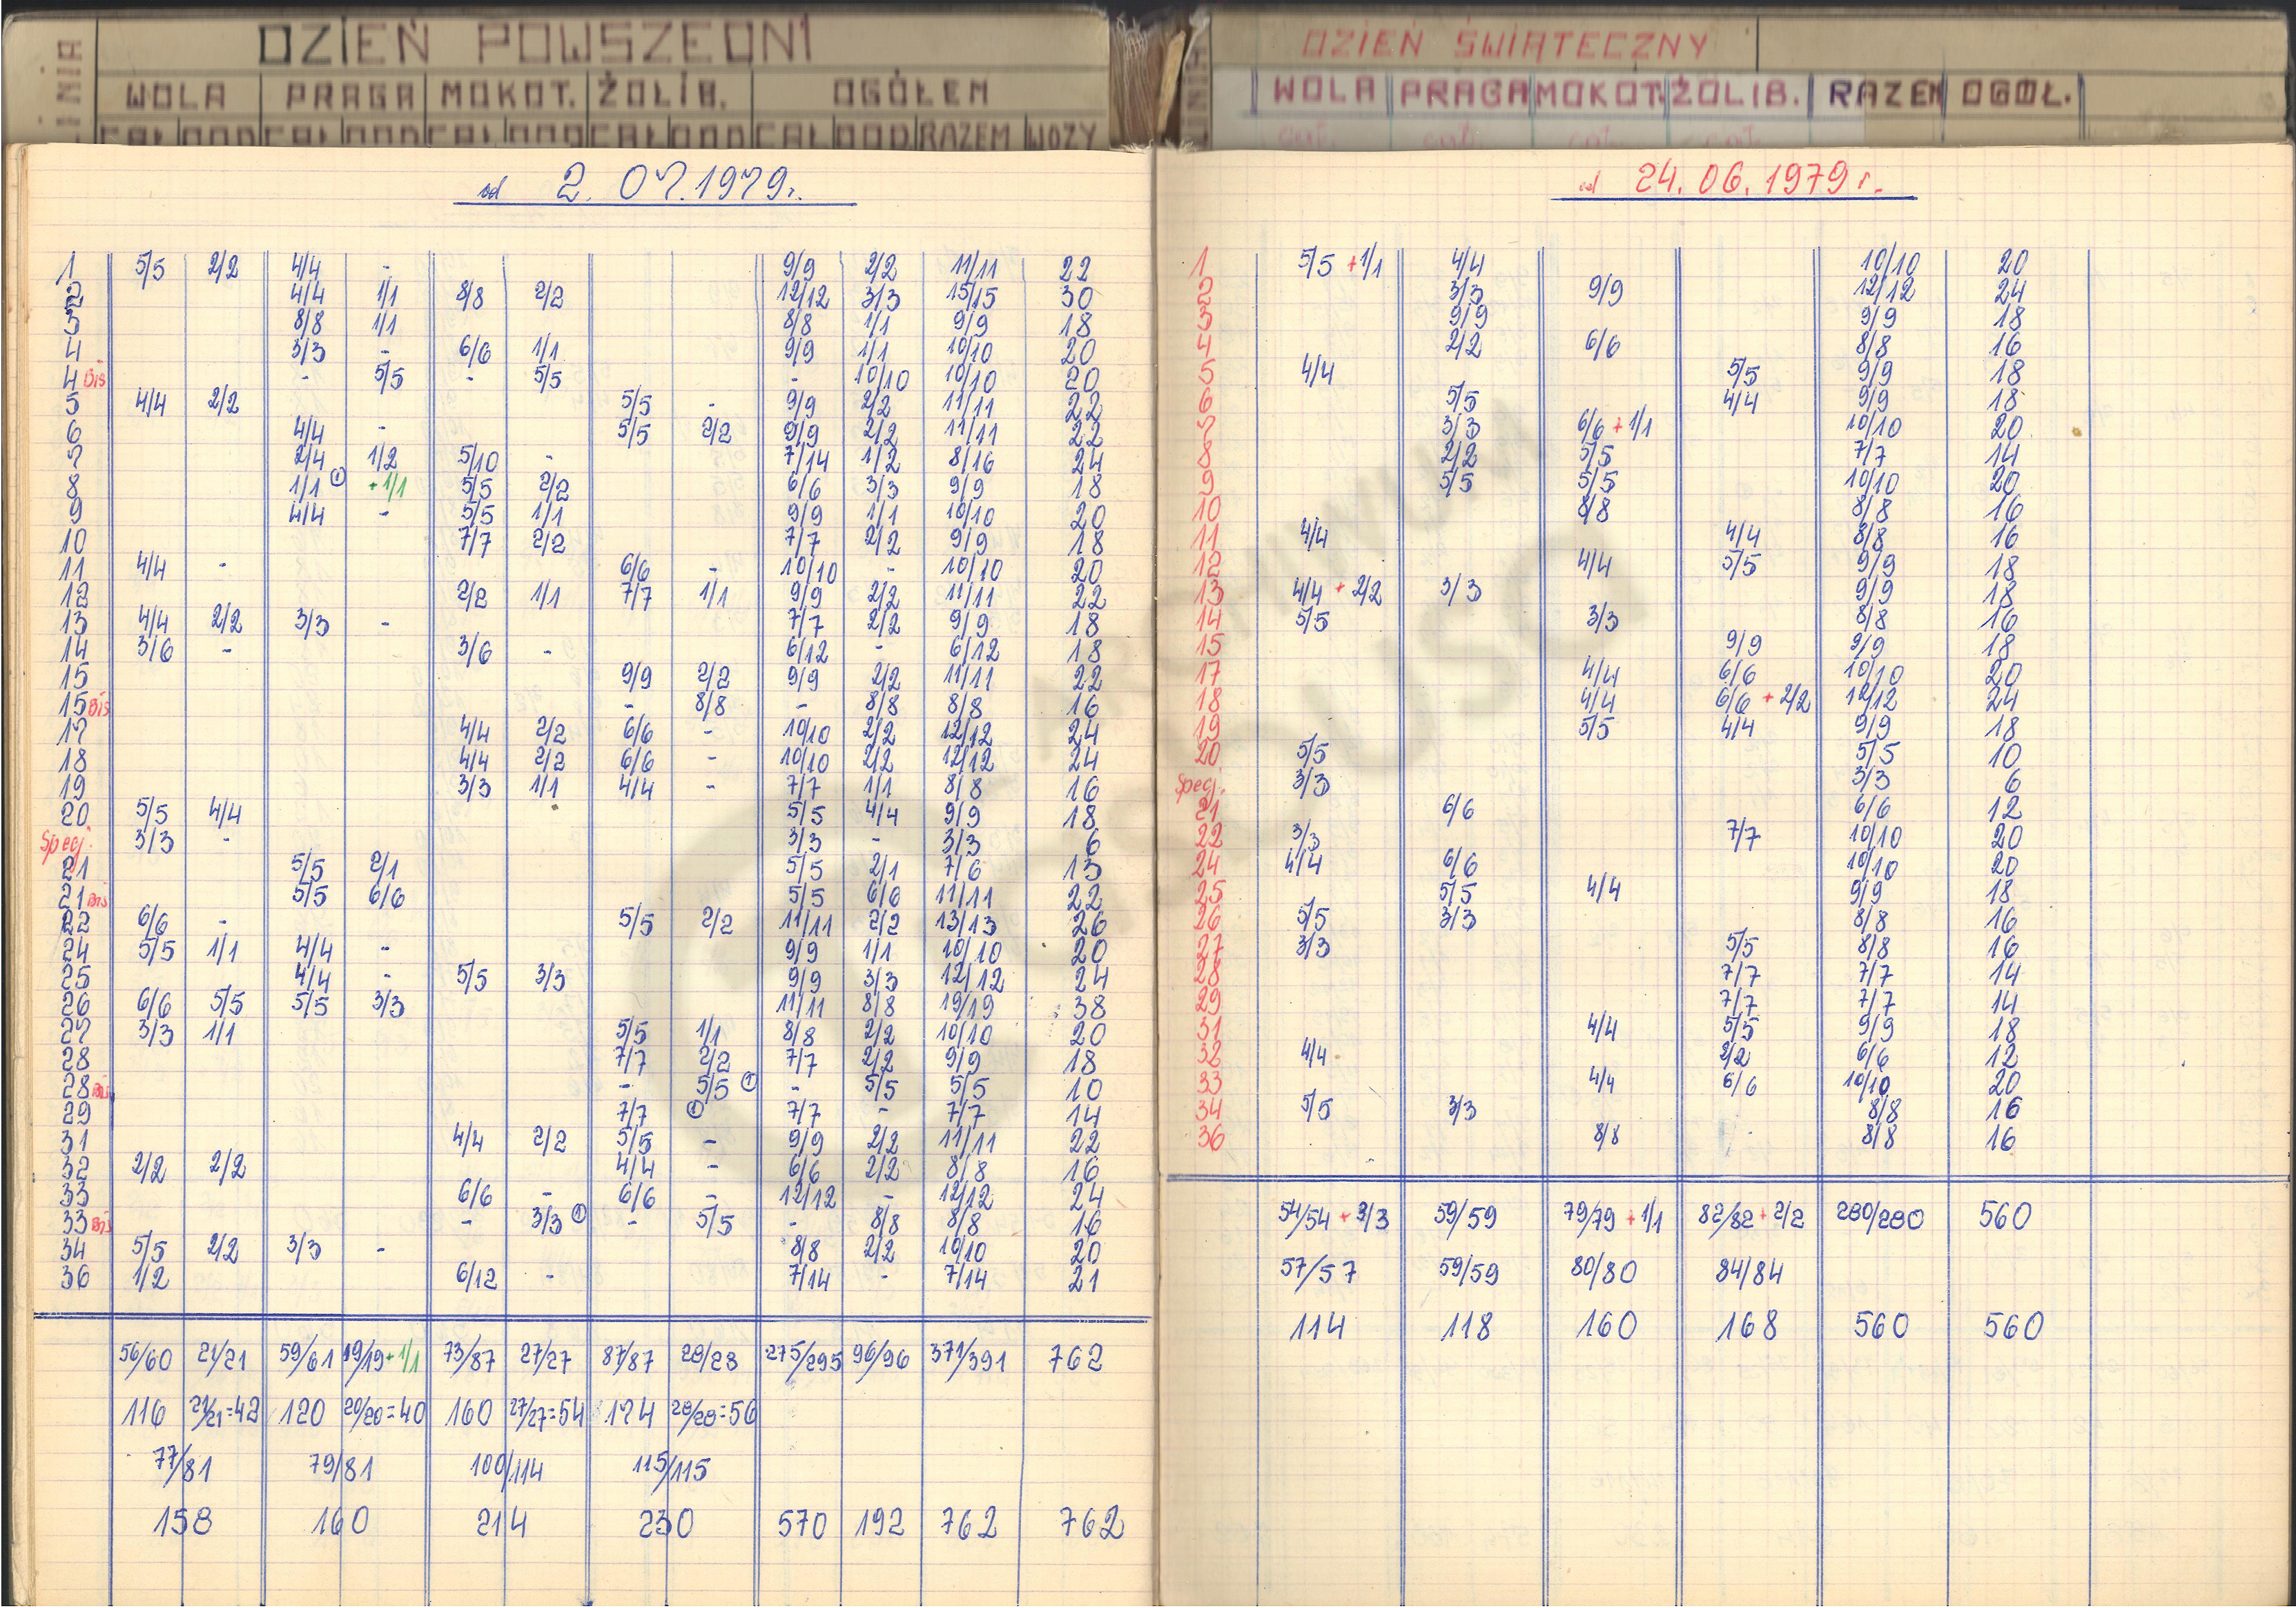 DZIEŃ POWSZEDNI
LINIA WOLA PRAGA MOKOT. ŻOLIB. OGÓŁEM
CAŁ DOD CAŁ DOD CAŁ DOD CAŁ DOD CAŁ DOD RAZEM WOZY
od 2.07.1979r.
1 5/5 2/2 4/4 - 9/9 2/2 11/11 22
2 4/4 1/1 8/8 2/2 12/12 3/3 15/15 30
3 8/8 1/1 8/8 1/1 9/9 18
4 3/3 - 6/6 1/1 9/9 1/1 10/10 20
4 Bis - 5/5 - 5/5 - 10/10 10/10 20
5 4/4 2/2 5/5 - 9/9 2/2 11/11 22
6 4/4 - 5/5 2/2 9/9 2/2 11/11 22
7 2/4 1/2 5/10 - 7/14 1/2 8/16 24
8 1/1 ① +1/1 5/5 2/2 6/6 3/3 9/9 18
9 4/4 - 5/5 1/1 9/9 1/1 10/10 20
10 7/7 2/2 7/7 2/2 9/9 18
11 4/4 - 6/6 - 10/10 - 10/10 20
12 2/2 1/1 7/7 1/1 9/9 2/2 11/11 22
13 4/4 2/2 3/3 - 7/7 2/2 9/9 18
14 3/6 - 3/6 - 6/12 - 6/12 18
15 9/9 2/2 9/9 2/2 11/11 22
15 Bis - 8/8 - 8/8 8/8 16
17 4/4 2/2 6/6 - 10/10 2/2 12/12 24
18 4/4 2/2 6/6 - 10/10 2/2 12/12 24
19 3/3 1/1 4/4 - 7/7 1/1 8/8 16
20 5/5 4/4 5/5 4/4 9/9 18
Specj. 3/3 - 3/3 - 3/3 6
21 5/5 2/1 5/5 2/1 7/6 13
21 Bis 5/5 6/6 5/5 6/6 11/11 22
22 6/6 - 5/5 2/2 11/11 2/2 13/13 26
24 5/5 1/1 4/4 - 9/9 1/1 10/10 20
25 4/4 - 5/5 3/3 9/9 3/3 12/12 24
26 6/6 5/5 5/5 3/3 11/11 8/8 19/19 38
27 3/3 1/1 5/5 1/1 8/8 2/2 10/10 20
28 7/7 2/2 7/7 2/2 9/9 18
28 Bis - 5/5 ① - 5/5 5/5 10
29 7/7 ① 7/7 - 7/7 14
31 4/4 2/2 5/5 - 9/9 2/2 11/11 22
32 2/2 2/2 4/4 - 6/6 2/2 8/8 16
33 6/6 - 6/6 - 12/12 - 12/12 24
33 Bis - 3/3 ① - 5/5 - 8/8 8/8 16
34 5/5 2/2 3/3 - 8/8 2/2 10/10 20
36 1/2 6/12 - 7/14 - 7/14 21
56/60 21/21 59/61 19/19+1/1 73/87 27/27 87/87 28/28 275/295 96/96 371/391 762
116 21/21=42 120 20/20=40 160 27/27=54 174 28/28=56
77/81 79/81 100/114 115/115
158 160 214 230 570 192 762 762
DZIEŃ ŚWIĄTECZNY
LINIA WOLA PRAGA MOKOT. ŻOLIB. RAZEM OGÓŁ.
od 24.06.1979 r.
1 5/5 +1/1 4/4 10/10 20
2 3/3 9/9 12/12 24
3 9/9 9/9 18
4 2/2 6/6 8/8 16
5 4/4 5/5 9/9 18
6 5/5 4/4 9/9 18
7 3/3 6/6 +1/1 10/10 20
8 2/2 5/5 7/7 14
9 5/5 5/5 10/10 20
10 8/8 8/8 16
11 4/4 4/4 8/8 16
12 4/4 5/5 9/9 18
13 4/4 + 2/2 3/3 9/9 18
14 5/5 3/3 8/8 16
15 9/9 9/9 18
17 4/4 6/6 10/10 20
18 4/4 6/6 + 2/2 12/12 24
19 5/5 4/4 9/9 18
20 5/5 5/5 10
Specj. 3/3 3/3 6
21 6/6 6/6 12
22 3/3 7/7 10/10 20
24 4/4 6/6 10/10 20
25 5/5 4/4 9/9 18
26 5/5 3/3 8/8 16
27 3/3 5/5 8/8 16
28 7/7 7/7 14
29 7/7 7/7 14
31 4/4 5/5 9/9 18
32 4/4 2/2 6/6 12
33 4/4 6/6 10/10 20
34 5/5 3/3 8/8 16
36 8/8 8/8 16
54/54 + 3/3 59/59 79/79 +1/1 82/82 + 2/2 280/280 560
57/57 59/59 80/80 84/84
114 118 160 168 560 560